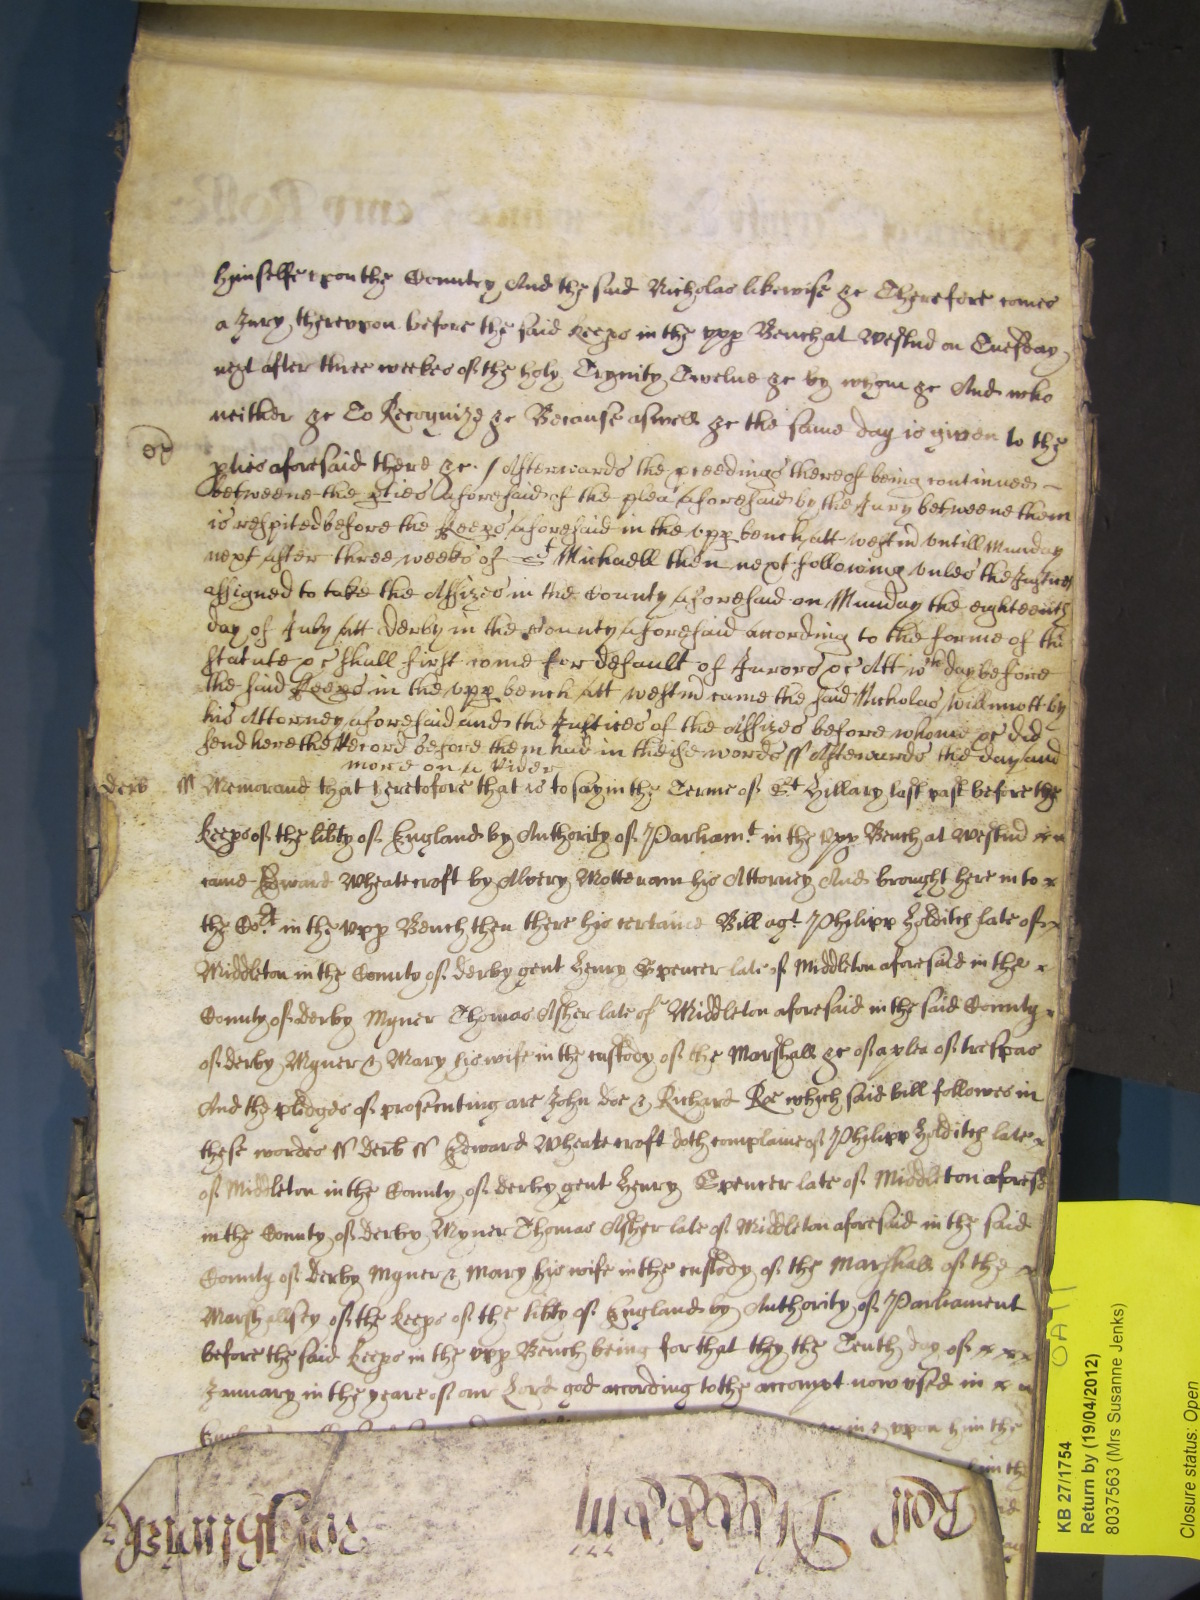 himselfe upon the Country And the said Nicholas likewise &c Therefore comes
a Jury thereupon before the said Keeps in the upp Bench at Westmd on Tuesday
next after three weekes of the holy Trynity Twelve &c by whom &c And who
neither &c To Recognize &c Because aswell &c the same day is given to the
pties aforesaid there &c / Afterwards the pceedings thereof being continued
betweene the pties aforesaid of the plea aforesaid by the Jury betweene them
is respited before the Keeps aforesaid in the upp bench att westmd untill Munday
next after three weeks of St Michaell then next following unles the Justices
assigned to take the Assizes in the County aforesaid on Munday the eighteenth
day of July att Derby in the County aforesaid according to the forme of the
Statute &c shall first come for default of Jurors &c Att wch day before
the said Keeps in the upp bench att westmd came the said Nicholas Willimott by
his Attorney aforesaid and the Justices of the Assizes before whome &c did
send here the Record before them had in theise words ss Afterwards the day and
more on a Rider
Derb ss Memorand that heretofore that is to say in the Terme of St Hillary last past before the
Keeps of the libty of England by Authority of Parliamt in the upp Bench at Westmd
came Edward Wheatecroft by Alvery Motteram his Attorney And brought here in to
the Cort in the upp Bench then there his certaine Bill agt Philipp Holditch late of
Middleton in the County of derby gent Henry Spencer late of Middleton aforesaid in the
County of derby Myner Thomas Asher late of Middleton aforesaid in the said County
of derby Myner & Mary his wife in the custody of the Marshall &c of a plea of trespas
And the pledges of prosecuting are John Doe & Richard Roe which said bill followes in
these wordes ss Derb ss Edward Wheatecroft doth complaine of Philipp Holditch late
of Middleton in the County of derby gent Henry Spencer late of Middleton aforesd
in the County of derby Myner Thomas Asher late of Middleton aforesaid in the said
County of derby Myner & Mary his wife in the custody of the Marshall of the
Marshallsey of the Keeps of the libty of England by Authority of Parliament
before the said Keeps in the upp Bench being for that they the Tenth day of
January in the yeare of our Lord god according to the accompt now used in
in & upon him the
KB 27/1754
Return by (19/04/2012)
8037563 (Mrs Susanne Jenks)
Closure status: Open